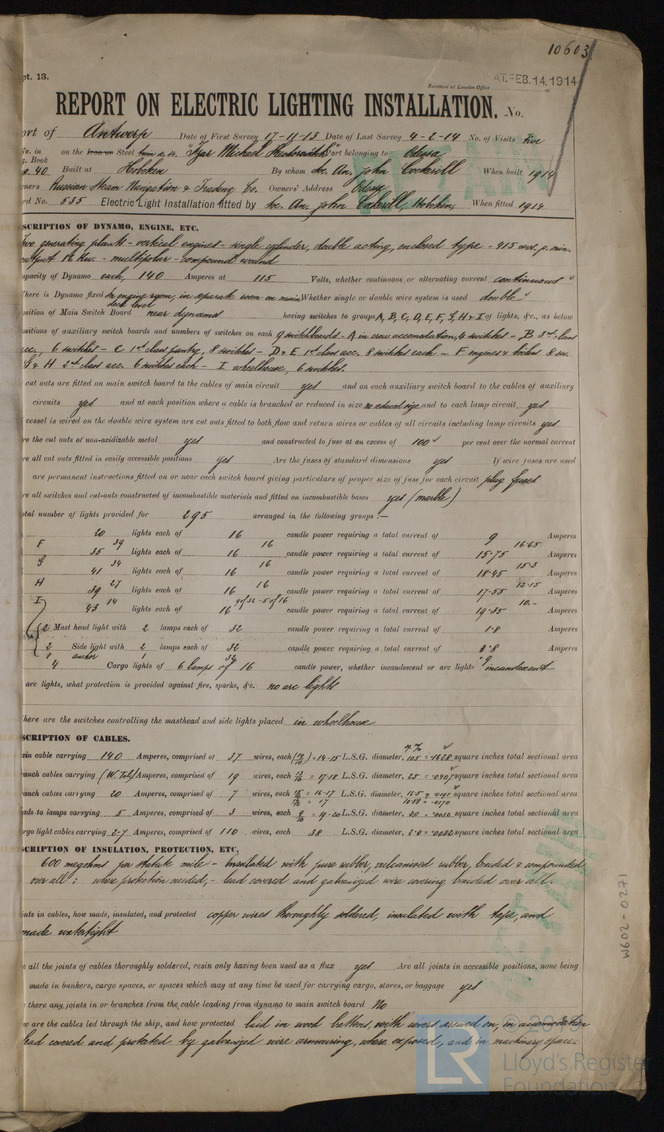 10603
pt. 13.
Received at London Office
SAT. FEB. 14. 1914
REPORT ON ELECTRIC LIGHTING INSTALLATION. No.
ort of Antwerp Date of First Survey 17-11-13 Date of Last Survey 4-2-14 No. of Visits Five
No. in on the Iron or Steel Port belonging to Odessa
g. Book
o. 40 Built at Hoboken By whom Soc. An. John Cockerill When built 1914
ners Russian Steam Navigation & Trading Co. Owners' Address Odessa
rd No. 535 Electric Light Installation fitted by Soc. An. John Cockerill, Hoboken When fitted 1914
SCRIPTION OF DYNAMO, ENGINE, ETC.
Two generating plants - vertical engines - single cylinder, double acting, enclosed type - 415 revs. p. min.
output 16 kw. - multipolar - compound wound
apacity of Dynamo each, 140 Amperes at 115 Volts, whether continuous or alternating current continuous
here is Dynamo fixed in engine room, in separate room on main deck level Whether single or double wire system is used double
osition of Main Switch Board near dynamo having switches to groups A, B, C, D, E, F, G, H & I of lights, &c., as below
ositions of auxiliary switch boards and numbers of switches on each 9 switchboards. A in crew accomodation, 4 switches - B 3rd class
acc., 6 switches - C 1st class pantry, 8 switches - D & E 1st class acc. 8 switches each - F engines & boilers 8 sw.
G & H 2nd class acc. 6 switches each - I wheelhouse, 6 switches.
cut outs are fitted on main switch board to the cables of main circuit yes and on each auxiliary switch board to the cables of auxiliary
circuits yes and at each position where a cable is branched or reduced in size no reduced size and to each lamp circuit yes
vessel is wired on the double wire system are cut outs fitted to both flow and return wires or cables of all circuits including lamp circuits yes
re the cut outs of non-oxidizable metal yes and constructed to fuse at an excess of 100 per cent over the normal current
re all cut outs fitted in easily accessible positions yes Are the fuses of standard dimensions yes If wire fuses are used
are permanent instructions fitted on or near each switch board giving particulars of proper size of fuse for each circuit plug fuses
re all switches and cut-outs constructed of incombustible materials and fitted on incombustible bases yes (marble)
otal number of lights provided for 295 arranged in the following groups :—
20 lights each of 16 candle power requiring a total current of 9 Amperes
F 35 39 lights each of 16 16 candle power requiring a total current of 15.75 16.65 Amperes
G 41 34 lights each of 16 16 candle power requiring a total current of 18.45 15.3 Amperes
H 39 27 lights each of 16 16 candle power requiring a total current of 17.55 12.15 Amperes
I 43 14 lights each of 16 9 of 32 - 5 of 16 candle power requiring a total current of 19.35 10.- Amperes
2 Mast head light with 2 lamps each of 32 candle power requiring a total current of 1.8 Amperes
2 Side light with 2 lamps each of 32 candle power requiring a total current of Amperes
anchor
4 Cargo lights of 6 lamps of 16 candle power, whether incandescent or arc lights incandescent
arc lights, what protection is provided against fire, sparks, &c. no arc lights
here are the switches controlling the masthead and side lights placed in wheelhouse
SCRIPTION OF CABLES.
ain cable carrying 140 Amperes, comprised of 37 wires, each = 14-15 L.S.G. diameter, square inches total sectional area
ranch cables carrying Amperes, comprised of 19 wires, each = 17-18 L.S.G. diameter, square inches total sectional area
ranch cables carrying 20 Amperes, comprised of 7 wires, each = 16-17 L.S.G. diameter, square inches total sectional area
ads to lamps carrying 5 Amperes, comprised of 3 wires, each = 19-20 L.S.G. diameter, square inches total sectional area
argo light cables carrying 2.7 Amperes, comprised of 110 wires, each 38 L.S.G. diameter, square inches total sectional area
SCRIPTION OF INSULATION, PROTECTION, ETC.
600 megohms per statute mile - Insulated with pure rubber, vulcanised rubber, braided & compounded
over all; where protection needed, - lead covered and galvanized wire covering braided over all.
nts in cables, how made, insulated, and protected copper wires thoroughly soldered, insulated with tape, and
made watertight
e all the joints of cables thoroughly soldered, resin only having been used as a flux yes Are all joints in accessible positions, none being
made in bunkers, cargo spaces, or spaces which may at any time be used for carrying cargo, stores, or baggage yes
there any joints in or branches from the cable leading from dynamo to main switch board No
ow are the cables led through the ship, and how protected laid in wood battens, with covers screwed on, in accomodation
lead covered and protected by galvanized wire armouring, where exposed, and in machinery space.
W602-0271
LR
Lloyd's Register
Foundation